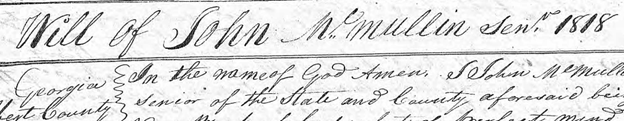 Will of John Mc.mullin Senr. 1818
Georgia { In the name of God Amen. I John McMull
bert County { Senior of the State and County aforesaid bei